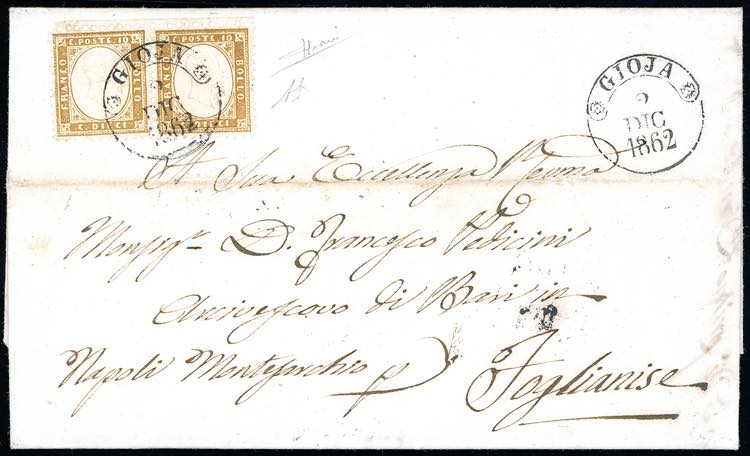 C. POSTE 10 C. POSTE 10
FRANCO BOLLO BOLLO
C. DIECI
GIOJA
2
DIC
1862
GIOJA
2
DIC
1862
A Sua Eccellenza Revma
Monsigr D. Francesco Pedicini
Arcivescovo di Bari in
Napoli Montesarchio p
Foglianise